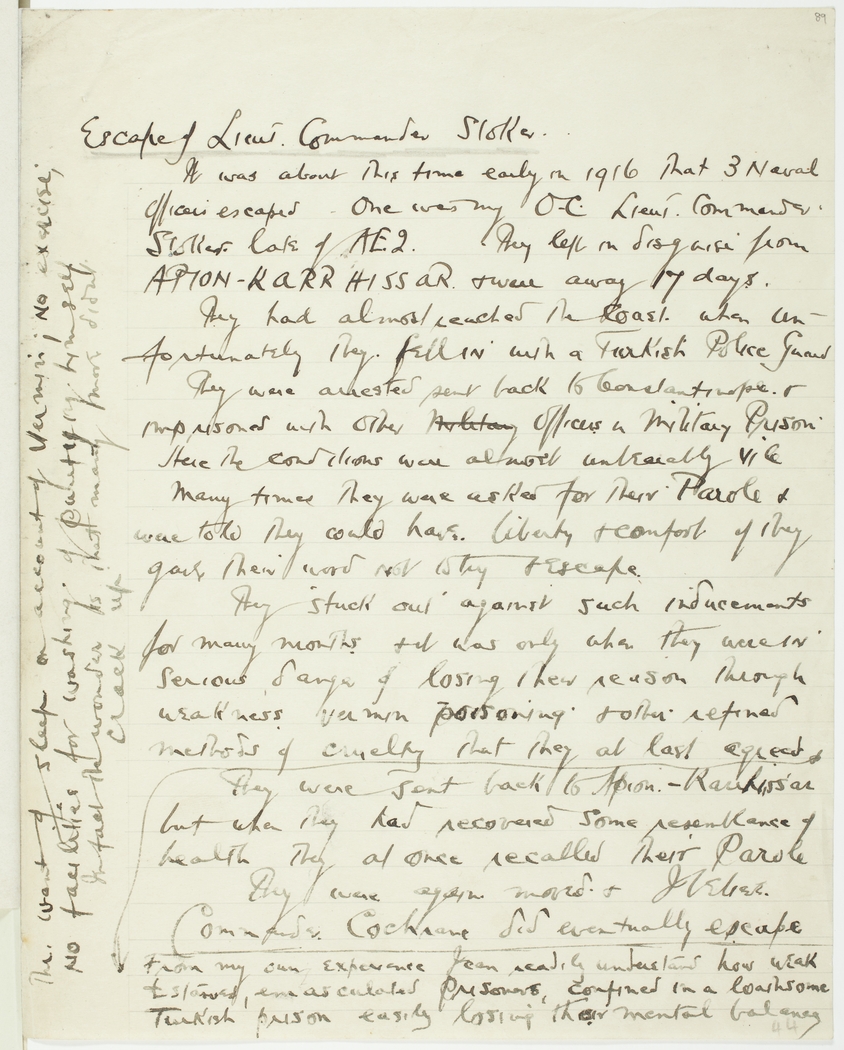 89
Escape of Lieut. Commander Stoker.
It was about this time early in 1916 that 3 Naval
Officers escaped - One was my O-C Lieut. Commander
Stoker late of AE2. They left in disguise from
APION-KARR HISSAR. & were away 17 days.
They had almost reached the Coast. when un-
fortunately they. fell in with a Turkish Police Guard
They were arrested sent back to Constantinople. &
imprisoned with other Military Officers in Military Prison
Here the conditions were almost unbearably Vile
Many times they were asked for their Parole &
were told they could have. liberty & comfort if they
gave their word not to try & Escape.
They 'stuck out' against such inducements
for many months & it was only when they were in
serious danger of losing their reason through
weakness vermin poisoning & other refined
methods of cruelty that they at last agreed &
They were sent back to Apion.-Karrhissar
but when they had recovered some resemblance of
health they at once recalled their Parole
They were again moved &
Commander Cochrane did eventually escape
From my own experience I can readily understand how weak
& starved, emasculated Prisoners, confined in a loathsome
Turkish prison easily losing their mental balance
44
The want of sleep on account of Vermin; No exercise;
No facilities for washing. of purifying himself
In fact the wonder is that many more didnt.
Crack up